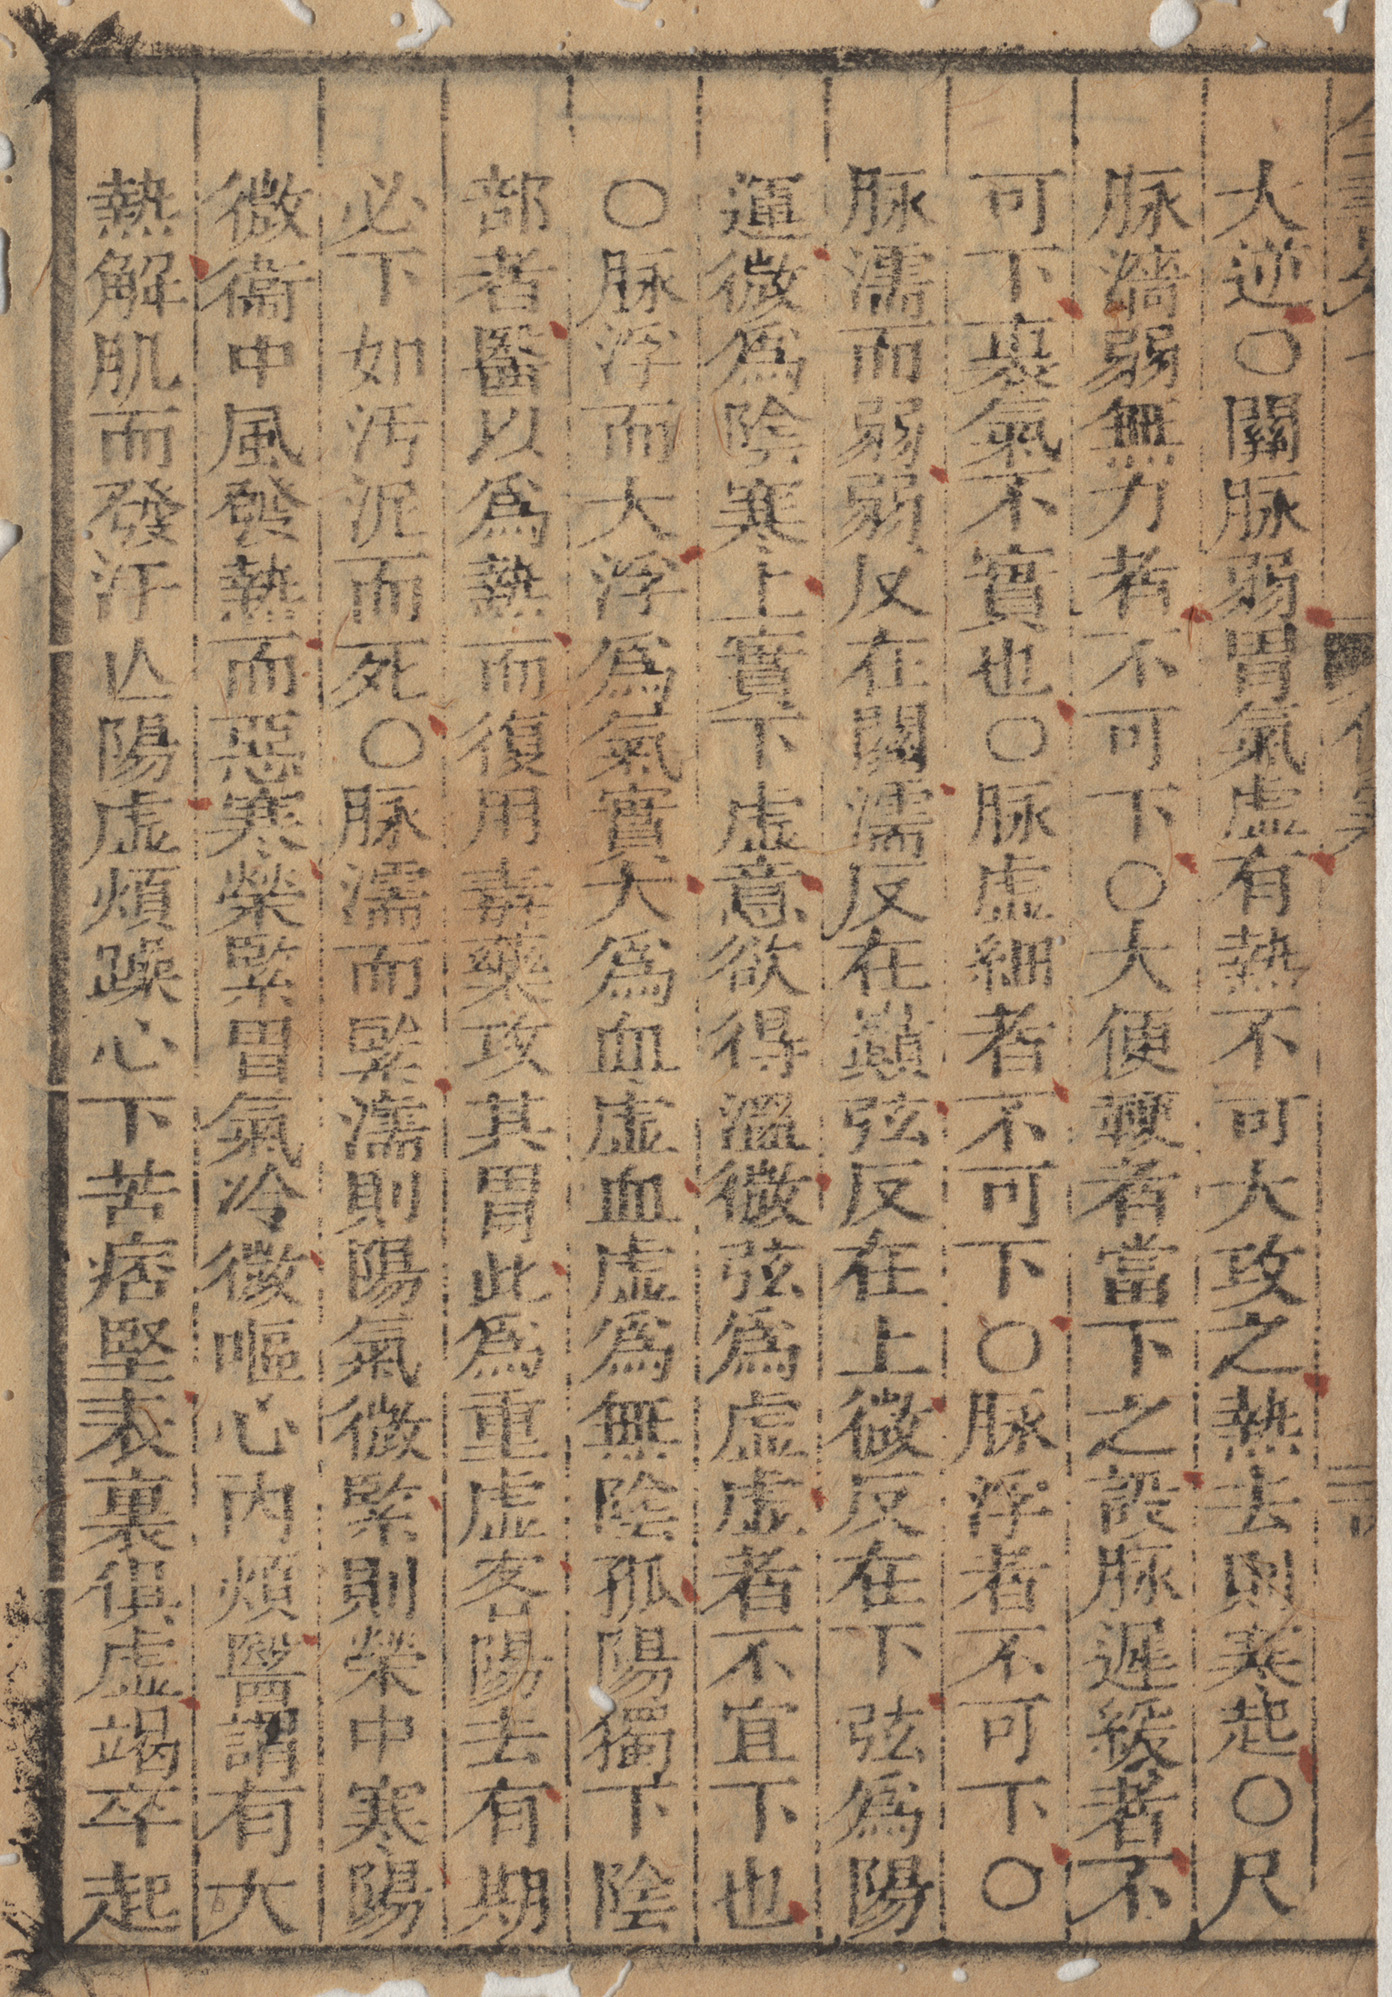 大逆○關脉弱胃氣虛有熱不可大攻之熱去則寒起○尺
脉濇弱無力者不可下○大便鞕者當下之設脉遲緩者不
可下裏氣不實也○脉虛細者不可下○脉浮者不可下○
脉濡而弱弱反在關濡反在巔弦反在上微反在下弦爲陽
運微爲陰寒上實下虛意欲得溫微弦爲虛虛者不宜下也
○脉浮而大浮爲氣實大爲血虛血虛爲無陰孤陽獨下陰
部者醫以爲熱而復用毒藥攻其胃此爲重虛客陽去有期
必下如汚泥而死○脉濡而緊濡則陽氣微緊則榮中寒陽
微衞中風發熱而惡寒榮緊胃氣冷微嘔心內煩醫謂有大
熱解肌而發汗亾陽虛煩躁心下苦痞堅表裏俱虛竭卒起